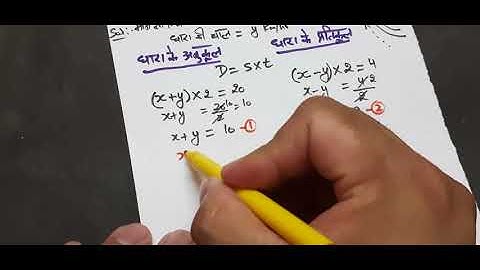 Sol:-
धारा की चाल = y Km/h
धारा के अनुकूल
धारा के प्रतिकूल
D = S×t
(x+y)×2 = 20
x+y = 20/2 = 10
x+y = 10 -①
(x-y)×2 = 4
x-y = 4/2
-②